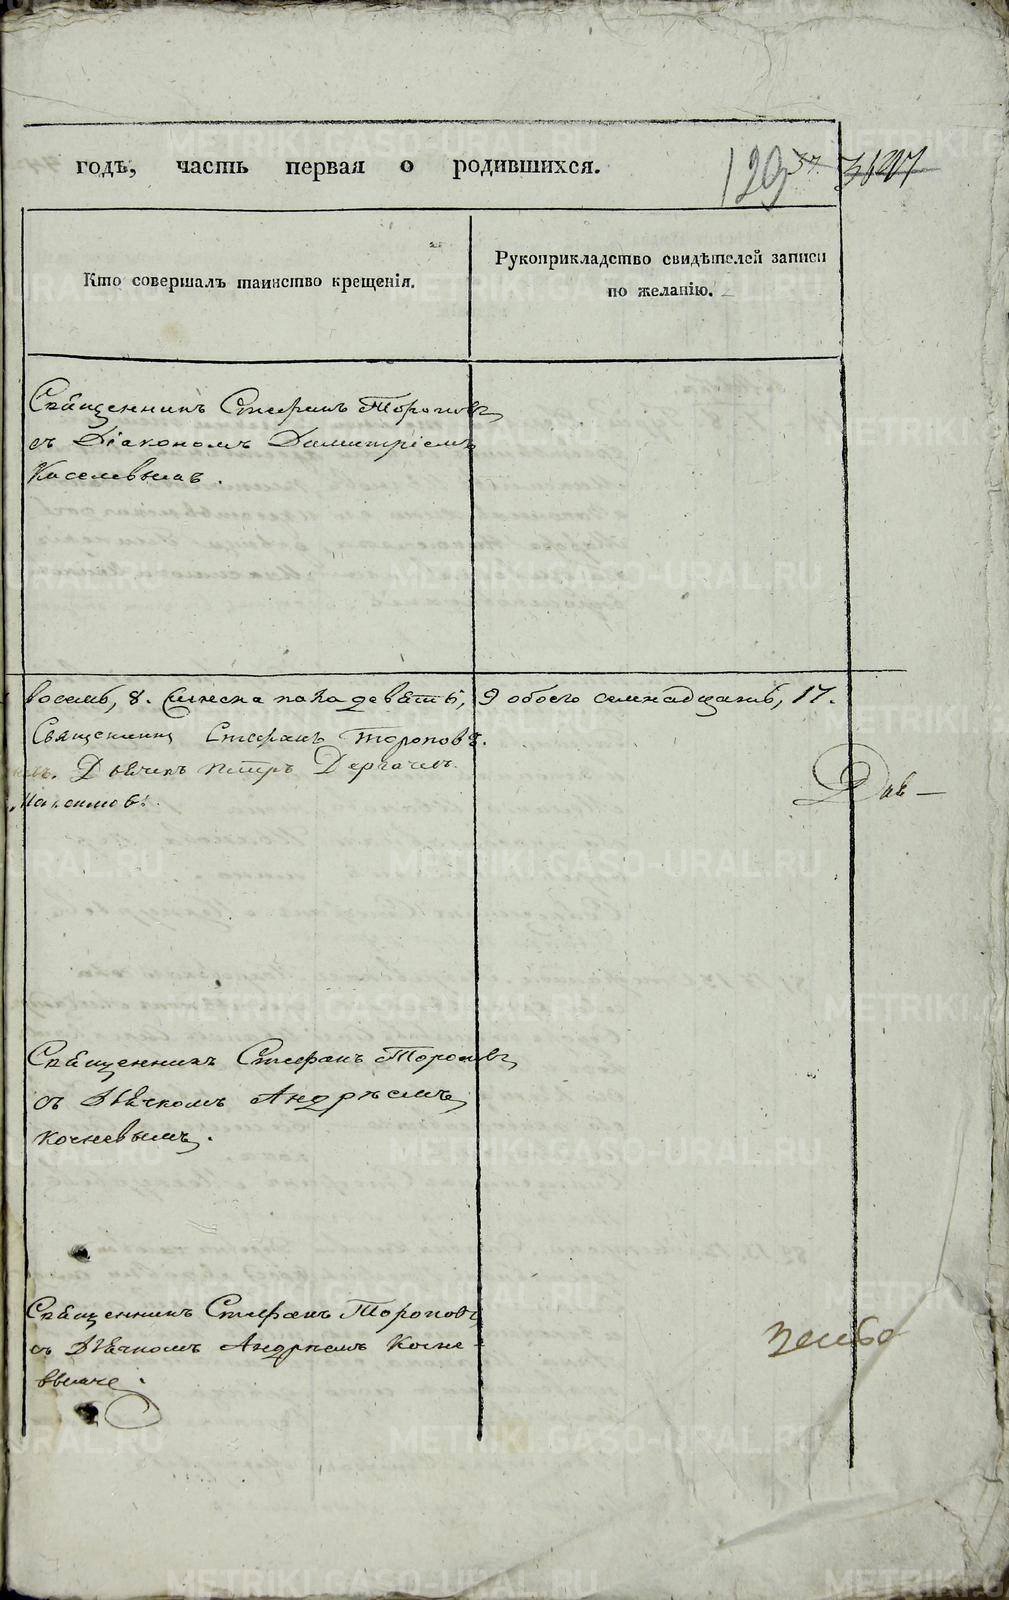 годѣ, часть первая о родившихся.
129
Кто совершалъ таинство крещенія.
Рукоприкладство свидѣтелей записи
по желанію.
Священникъ Стефанъ Тороповъ
съ Діакономъ Димитріемъ
Киселевымъ.
восемь, 8. женска пола девять, 9 обоего семнадцать, 17.
Священникъ Стефанъ Тороповъ.
Дьячекъ Петръ Дергачевъ.
Священникъ Стефанъ Тороповъ
съ Дьячкомъ Андреемъ
Кочневымъ.
Священникъ Стефанъ Тороповъ
съ Дьячкомъ Андреемъ Кочне-
вымъ.
METRIKI.GASO-URAL.RU